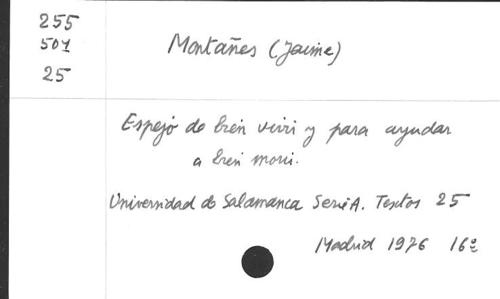 255
501
25
Montañes (Jaime)
Espejo de bien vivir y para ayudar
a bien morir.
Universidad de Salamanca Serie A. Textos 25
Madrid 1976 16º